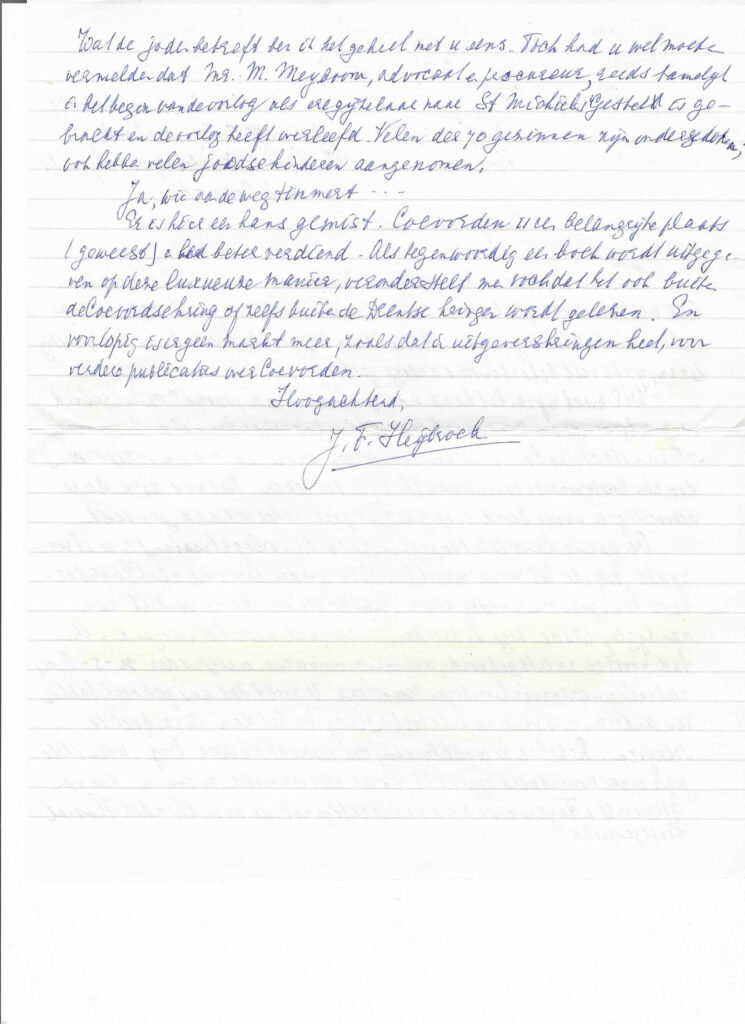 Wat de joden betreft ben ik het geheel met u eens. Toch had u wel moeten
vermelden dat Mr. M. Meyboom, advocaat en procureur, reeds tamelijk
in het begin van de oorlog als gijzelaar naar St Michiels Gestel is ge-
bracht en de oorlog heeft overleefd. Velen der 70 gezinnen zijn ondergedoken,
ook hebben velen joodse kinderen aangenomen.
Ja, wie aan de weg timmert - - -
Er is hier een kans gemist. Coevorden is een belangrijke plaats
(geweest) en had beter verdiend. Als tegenwoordig een boek wordt uitgege-
ven op deze luxueuze manier, veronderstelt men toch dat het ook buiten
de Coevordse kring of zelfs buiten de Drentse kringen wordt gelezen. En
voorlopig is er geen markt meer, zoals dat in uitgeverskringen heet, voor
verdere publicaties over Coevorden.
Hoogachtend,
J. F. Heybroek